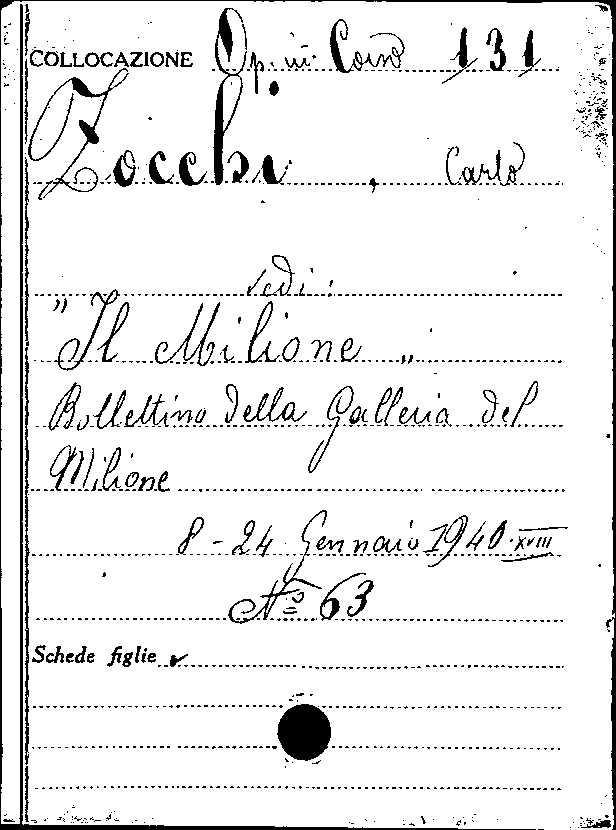 COLLOCAZIONE Op. in Corso 131
Zocchi, Carlo
vedi:
"Il Milione"
Bollettino della Galleria del
Milione
8-24 Gennaio 1940-XVIII
Nº 63
Schede figlie